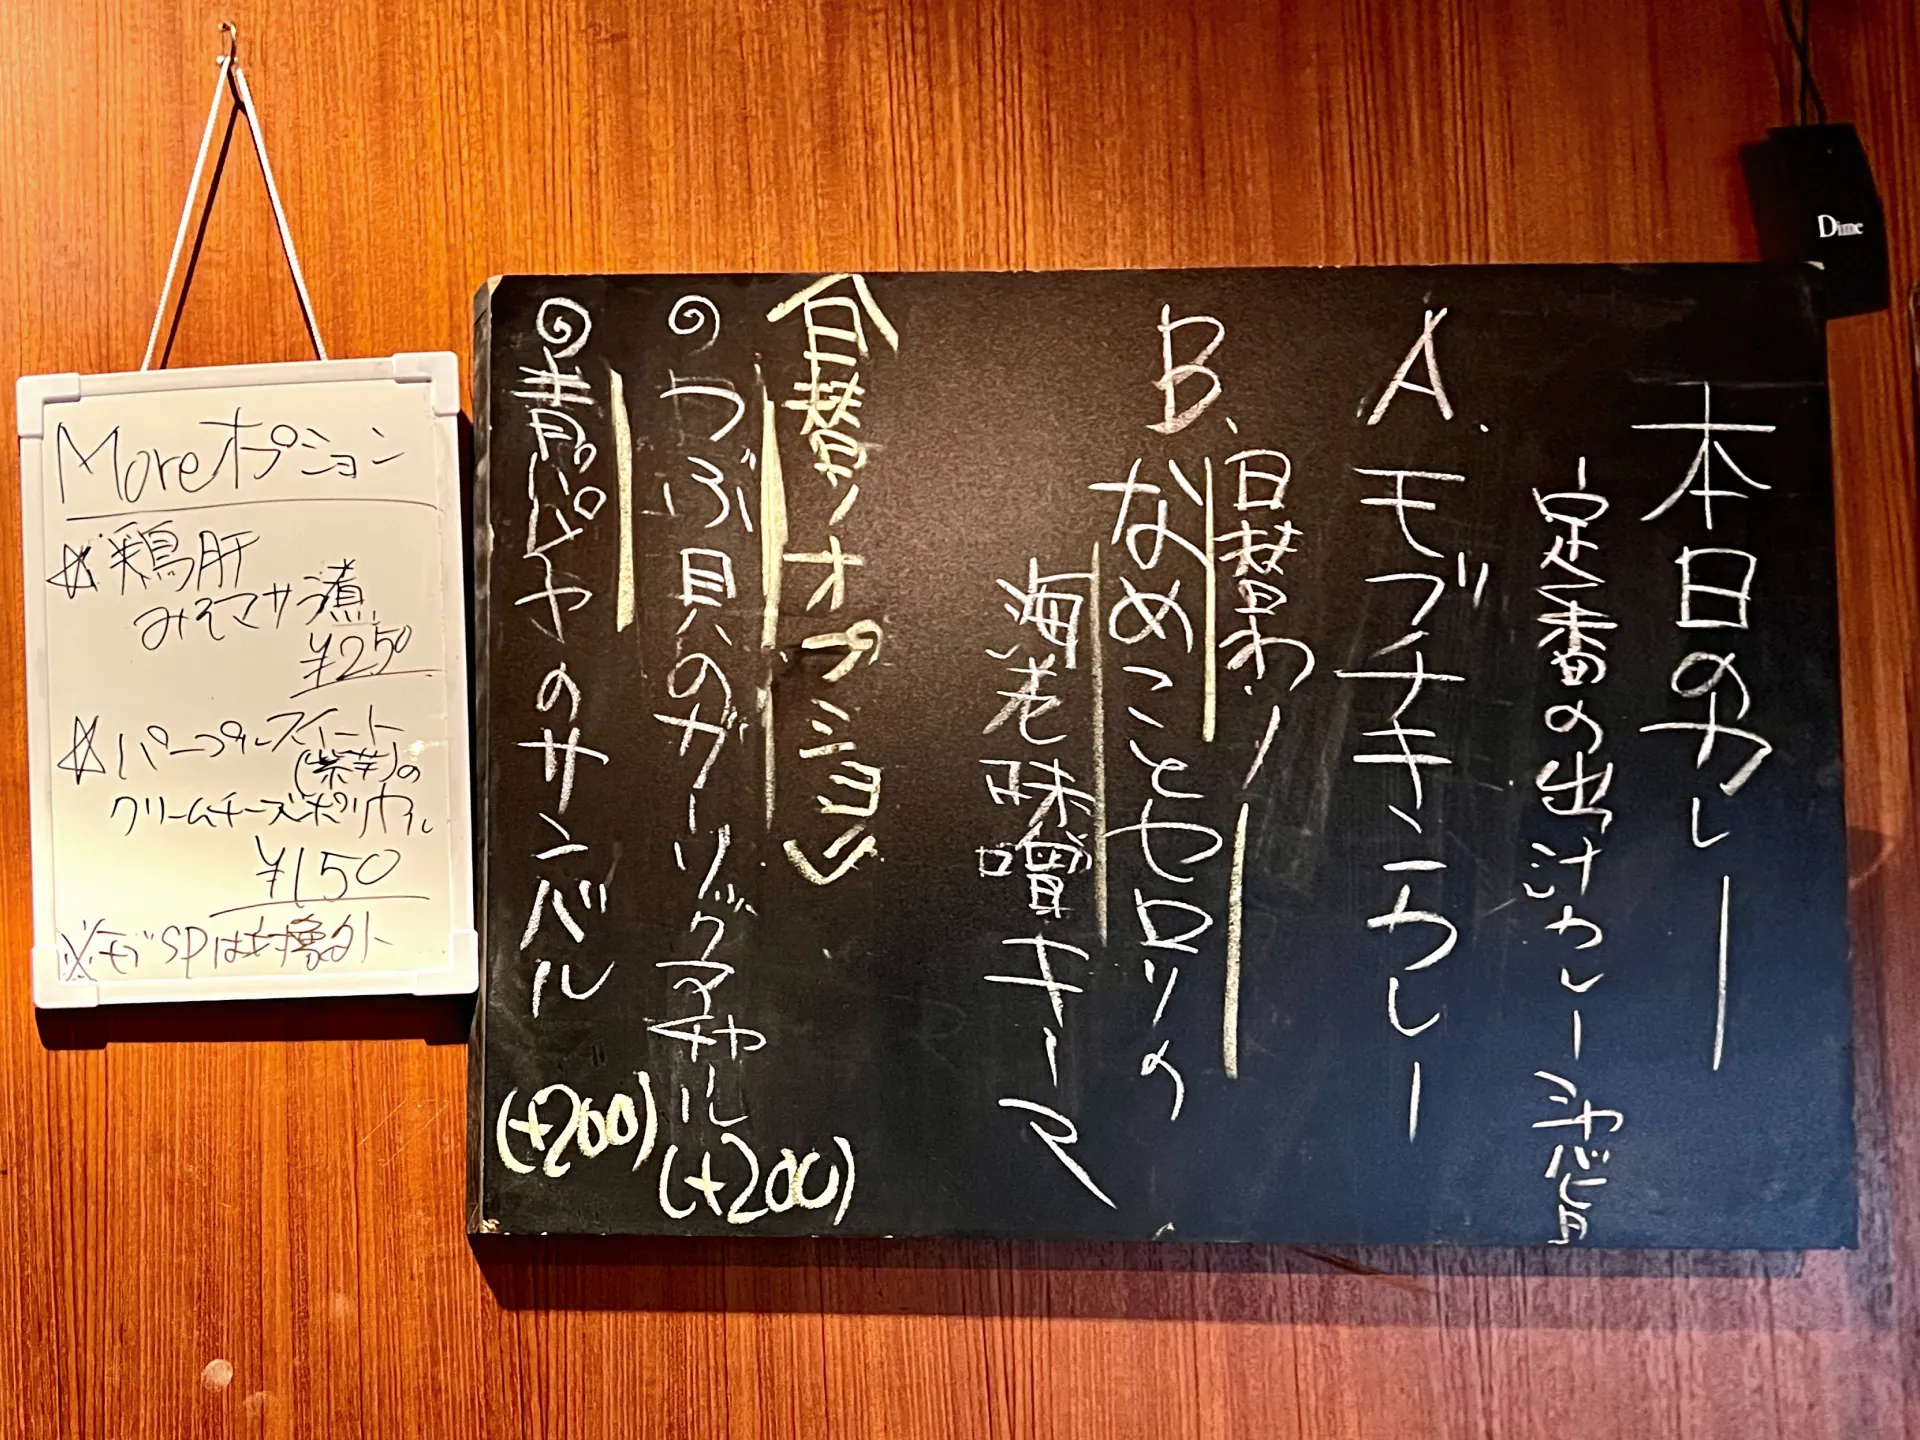 本日のカレー
定番の出汁カレー
A. モブチキンカレー
日替わり
B. なめことセロリの
海老味噌キーマ
日替りオプション
つぶ貝のガーリックアチャール (+200)
青パパイヤのサンバル (+200)
Moreオプション
☆鶏肝
みそマサラ煮
¥250
☆パープルスイート
(紫芋)の
クリームチーズポリヤル
¥150
※モブSPは対象外
Dime